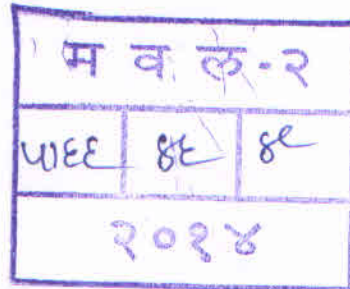 म व ल-२
५१६६ ४६
२०१४